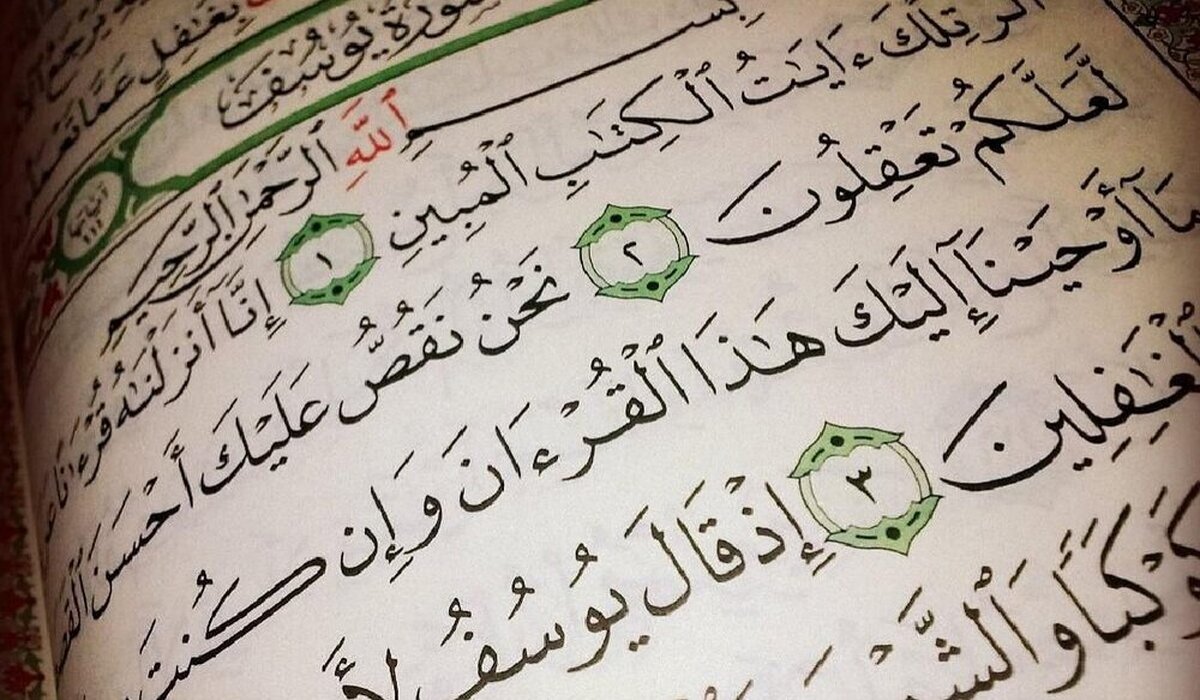 بِغَٰفِلٍ عَمَّا تَعْمَلُو
سُورَةُ يُوسُفَ
آيَاتُهَا ١١١
بِسْمِ ٱللَّهِ ٱلرَّحْمَٰنِ ٱلرَّحِيمِ
الٓر تِلْكَ ءَايَٰتُ ٱلْكِتَٰبِ ٱلْمُبِينِ ١ إِنَّآ أَنزَلْنَٰهُ قُرْءَٰنًا عَ
لَّعَلَّكُمْ تَعْقِلُونَ ٢ نَحْنُ نَقُصُّ عَلَيْكَ أَحْسَنَ ٱلْقَصَ
مَآ أَوْحَيْنَآ إِلَيْكَ هَٰذَا ٱلْقُرْءَانَ وَإِن كُنتَ
ٱلْغَٰفِلِينَ ٣ إِذْ قَالَ يُوسُفُ لِأَ
كَوْكَبًا وَٱلشَّمْ